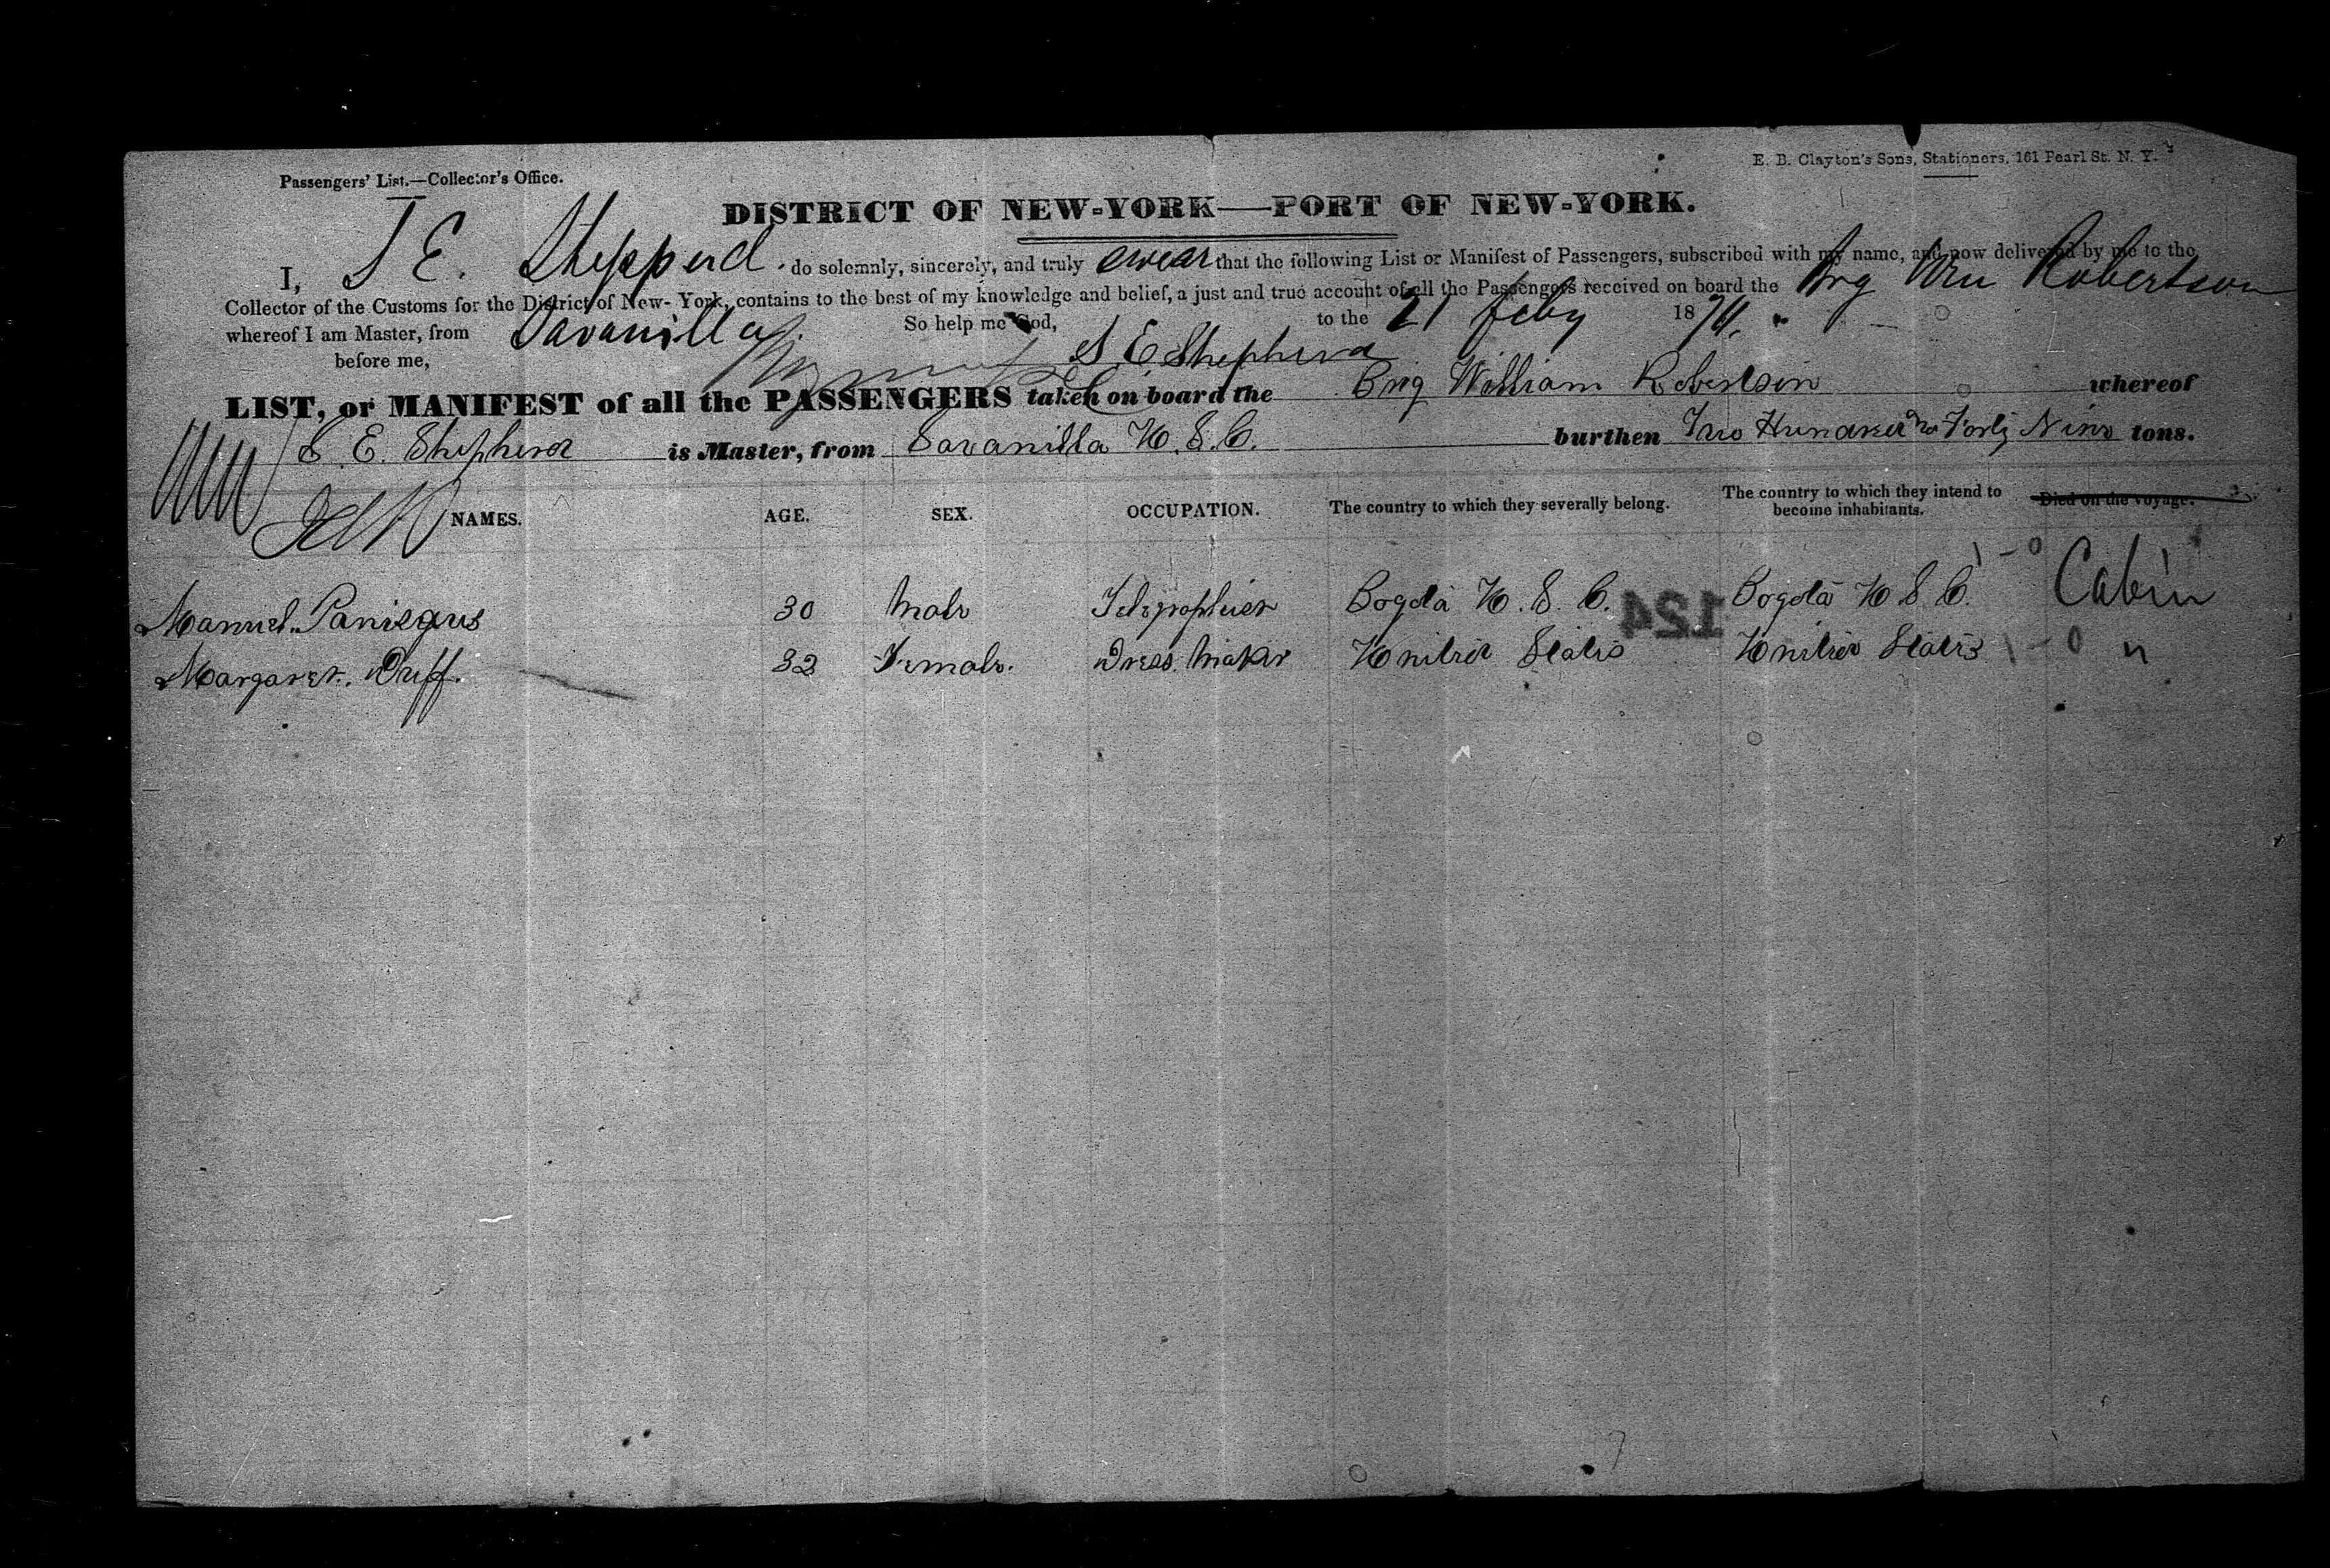 Passengers' List.—Collector's Office.
E. B. Clayton's Sons, Stationers, 161 Pearl St. N. Y.
DISTRICT OF NEW-YORK—PORT OF NEW-YORK.
I, S E. Shepperd do solemnly, sincerely, and truly swear that the following List or Manifest of Passengers, subscribed with my name, and now delivered by me to the
Collector of the Customs for the District of New-York, contains to the best of my knowledge and belief, a just and true account of all the Passengers received on board the Brg Wm Robertson
whereof I am Master, from Savanilla So help me God, to the 21 Feby 1874.
before me, S E Shepherd
LIST, or MANIFEST of all the PASSENGERS taken on board the Brig William Robertson whereof
S. E. Shepherd is Master, from Savanilla U.S.C. burthen Two Hundred Forty Nine tons.
NAMES. AGE. SEX. OCCUPATION. The country to which they severally belong. The country to which they intend to become inhabitants. Died on the voyage.
Manuel Paniagus 30 Male Telegraphier Bogota U.S.C. 124 Bogota U.S.C. 1-0 Cabin
Margaret Duff. 32 Female. Dress Maker United States United States 1-0 "